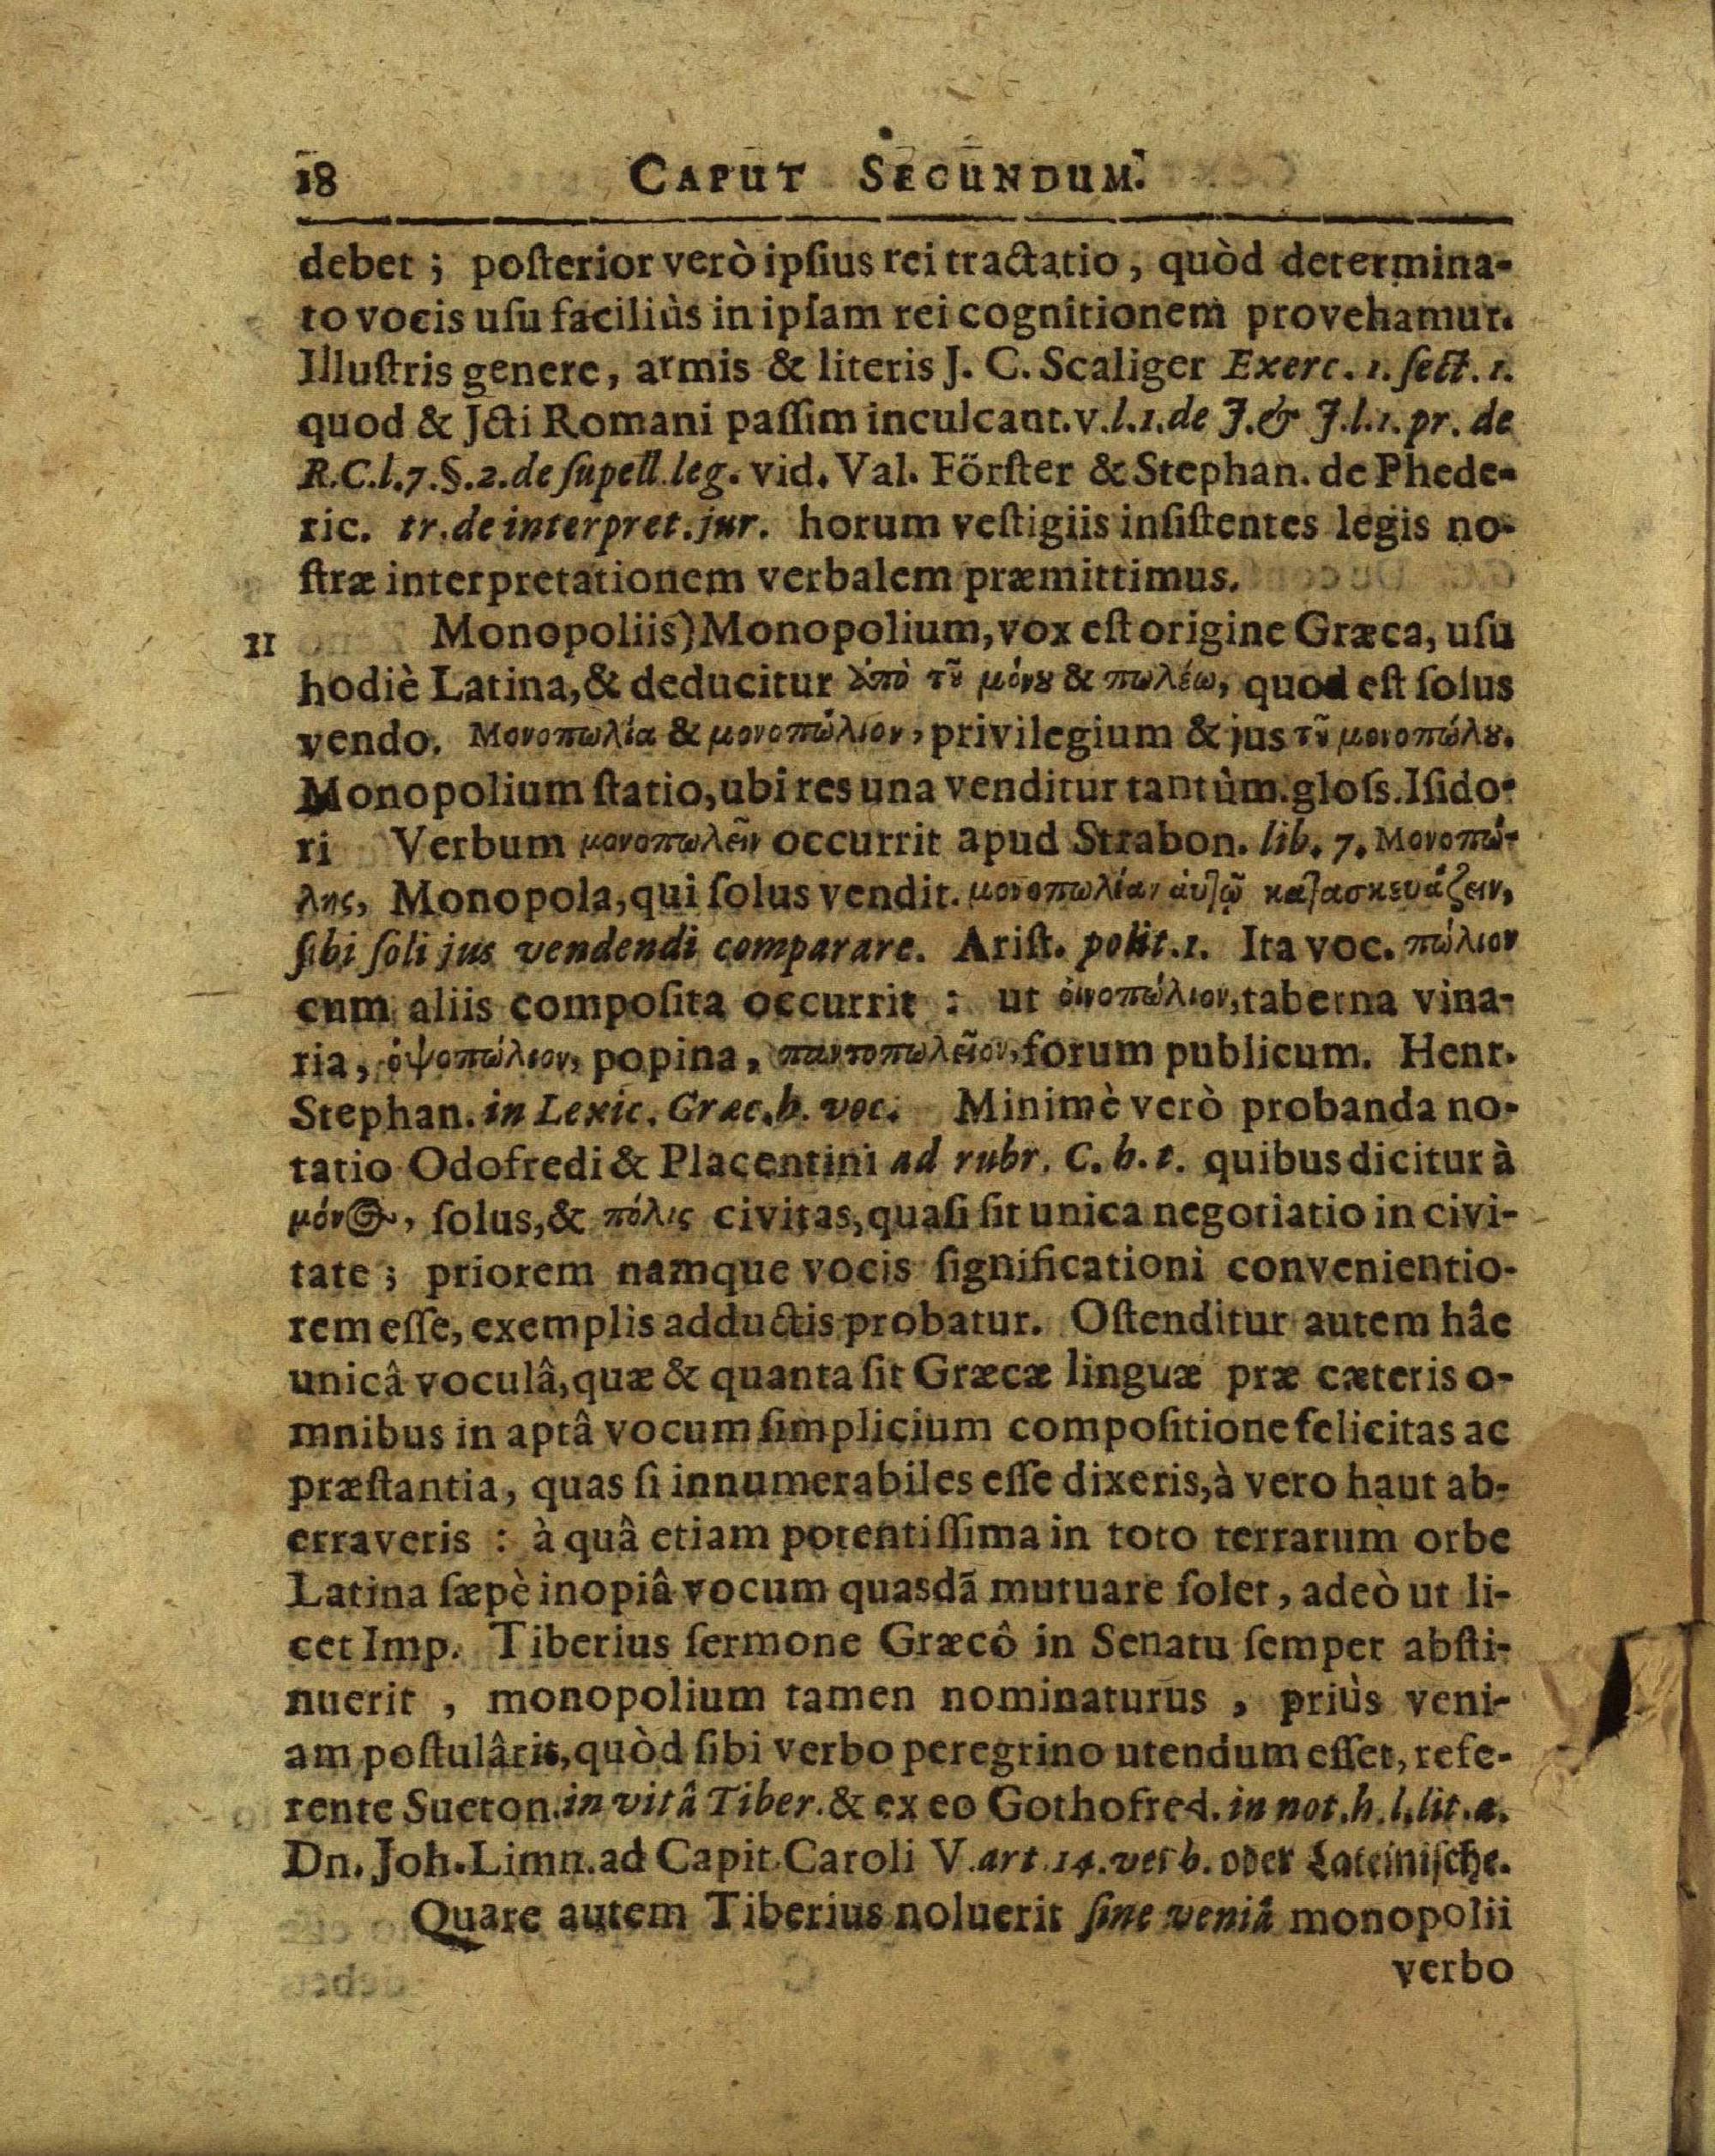 18 CAPUT SECUNDUM.
debet ; poſterior verò ipſius rei tractatio, quòd determina-
to vocis uſu faciliùs in ipſam rei cognitionem provehamur.
Illuſtris genere, armis & literis J. C. Scaliger Exerc. 1. ſect. 1.
quod & Jcti Romani paſſim inculcant. v. l. 1. de J. & J. l. 1. pr. de
R. C. l. 7. §. 2. de ſupell. leg. vid. Val. Förſter & Stephan. de Phede-
ric. tr. de interpret. jur. horum veſtigiis inſiſtentes legis no-
ſtræ interpretationem verbalem præmittimus.
11 Monopoliis) Monopolium, vox eſt origine Græca, uſu
hodiè Latina, & deducitur ἀπὸ τ῀ȣ μόνȣ & πωλέω, quod eſt ſolus
vendo. Μονοπωλία & μονοπώλιον, privilegium & jus τ῀ȣ μονοπώλȣ.
Monopolium ſtatio, ubi res una venditur tantùm. gloſs. Iſido-
ri Verbum μονοπωλεῖν occurrit apud Strabon. lib. 7. Μονοπώ-
λης, Monopola, qui ſolus vendit. μονοπωλίαν ἀυτῷ κατασκευάζειν,
ſibi ſoli jus vendendi comparare. Ariſt. polit. 1. Ita voc. πώλιον
cum aliis compoſita occurrit : ut ὀινοπώλιον, taberna vina-
ria, ὀψοπώλιον, popina, παντοπωλεῖον, forum publicum. Henr.
Stephan. in Lexic. Græc. h. voc. Minimè verò probanda no-
tatio Odofredi & Placentini ad rubr. C. h. t. quibus dicitur à
μόν@, ſolus, & πόλις civitas, quaſi ſit unica negotiatio in civi-
tate ; priorem namque vocis ſignificationi convenientio-
rem eſſe, exemplis adductis probatur. Oſtenditur autem hâc
unicâ voculâ, quæ & quanta ſit Græcæ linguæ præ cæteris o-
mnibus in aptâ vocum ſimplicium compoſitione felicitas ac
præſtantia, quas ſi innumerabiles eſſe dixeris, à vero haut ab-
erraveris : à quâ etiam potentiſſima in toto terrarum orbe
Latina ſæpè inopiâ vocum quasdã mutuare ſolet, adeò ut li-
cet Imp. Tiberius ſermone Græcô in Senatu ſemper abſti-
nuerit , monopolium tamen nominaturus , priùs veni-
am poſtulârit, quòd ſibi verbo peregrino utendum eſſet, refe-
rente Sueton. in vitâ Tiber. & ex eo Gothofred. in not. h. l. lit. a.
Dn. Joh. Limn. ad Capit. Caroli V. art. 14. verb. oder Lateiniſche.
Quare autem Tiberius noluerit ſine veniâ monopolii
verbo